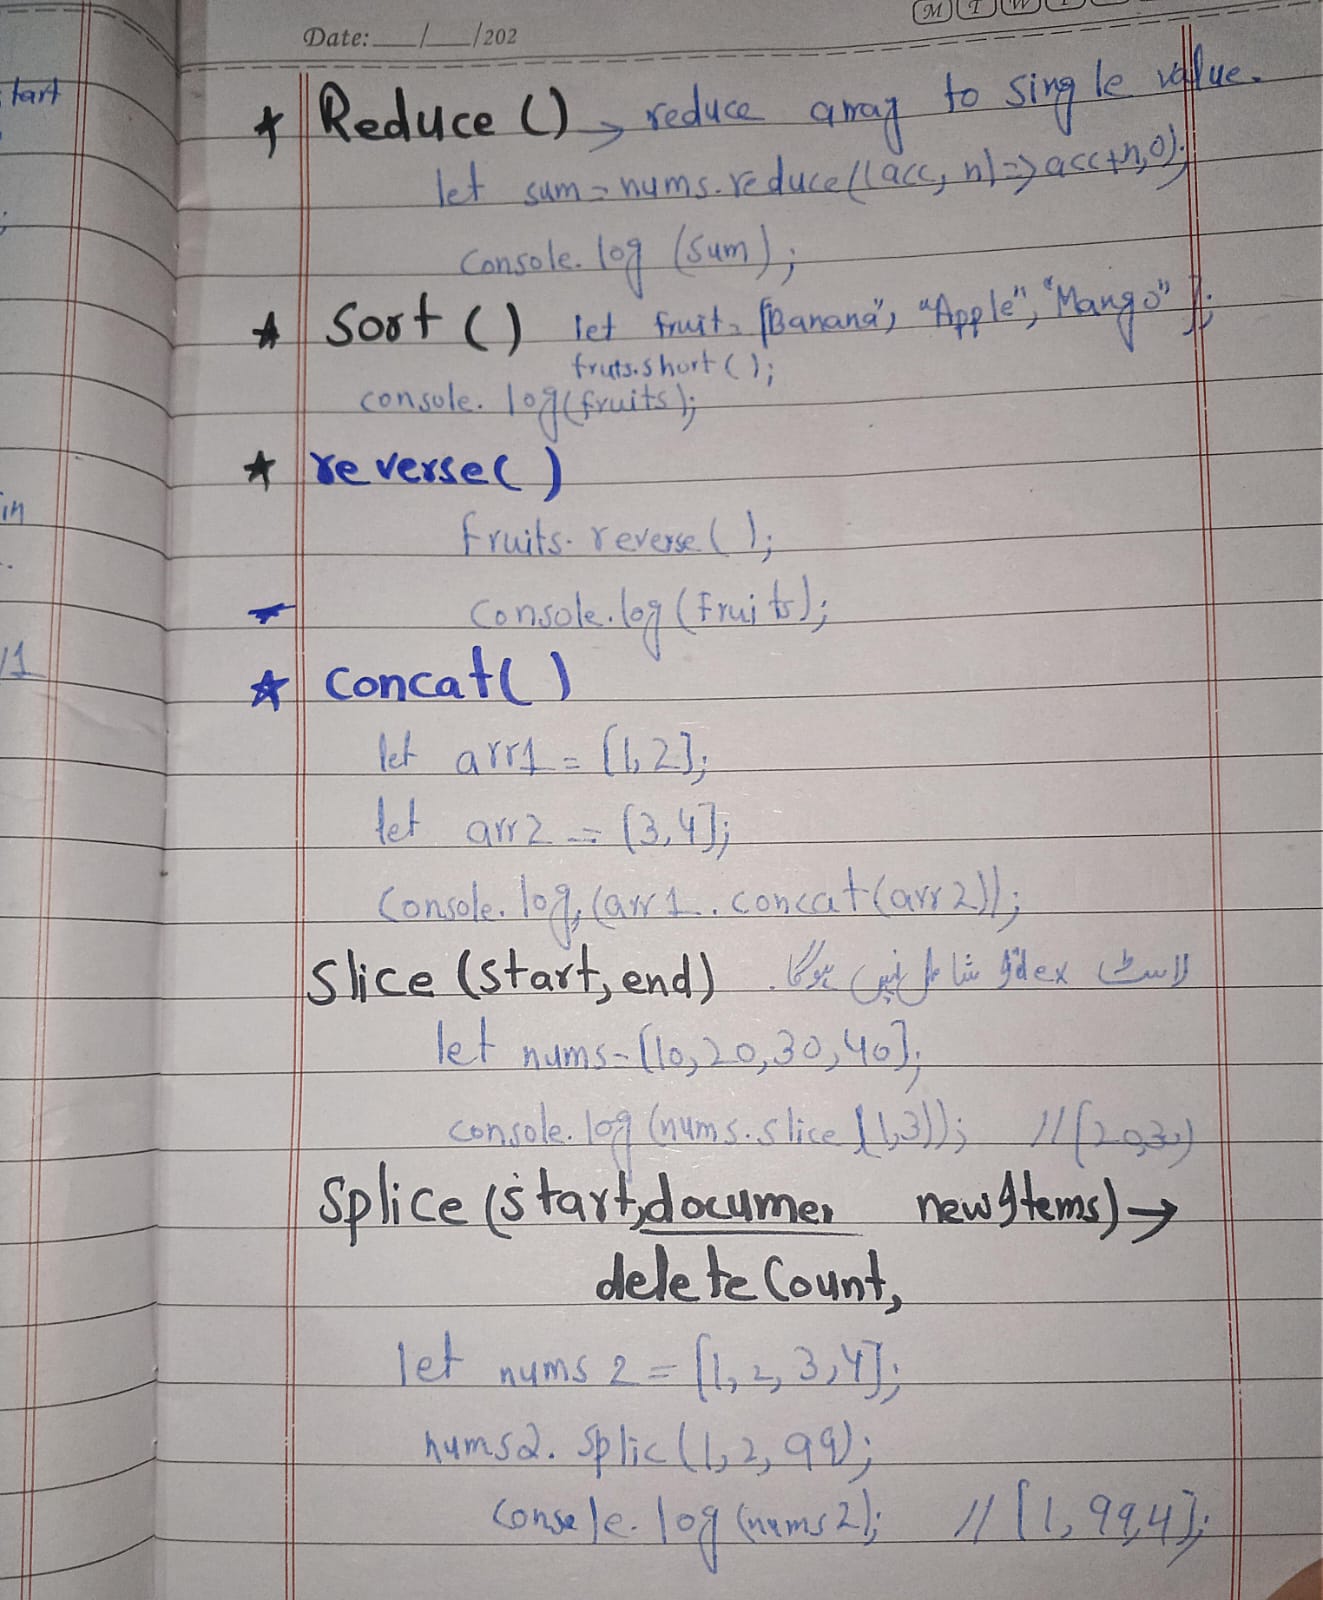 M T W
Date: __/__/202
tart
* Reduce () → reduce array to single value.
let sum = nums.reduce((acc, n)=>acc+n,0);
Console.log (sum);
* Sort () let fruit = [Banana", "Apple", "Mango"];
fruts.short();
console.log(fruits);
* reverse()
in
fruits.reverse();
Console.log(Fruits);
* Concat()
11
let arr1 = [1,2];
let arr2 = [3,4];
Console.log(arr1.concat(arr2));
Slice (start, end) لاسٹ index شامل نہیں ہوگا.
let nums=[10,20,30,40];
console.log(nums.slice(1,3)); //[20,30]
Splice (start, documen newItems)→
deleteCount,
let nums2 = [1,2,3,4];
nums2.splic(1,2,99);
Console.log(nums2); //[1,99,4];